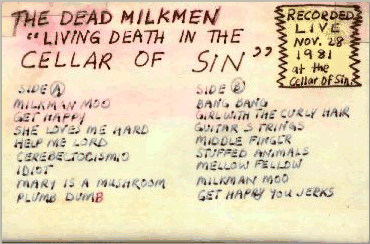 THE DEAD MILKMEN
"LIVING DEATH IN THE
CELLAR OF SIN"
RECORDED
LIVE
NOV. 28
1981
at the
Cellar Of Sin!
SIDE A
MILKMAN MOO
GET HAPPY
SHE LOVES ME HARD
HELP ME LORD
CEREBELTOCISMIO
IDIOT
MARY IS A MUSHROOM
PLUMB DUMB
SIDE B
BANG BANG
GIRL WITH THE CURLY HAIR
GUITAR STRINGS
MIDDLE FINGER
STUFFED ANIMALS
MELLOW FELLOW
MILKMAN MOO
GET HAPPY YOU JERKS